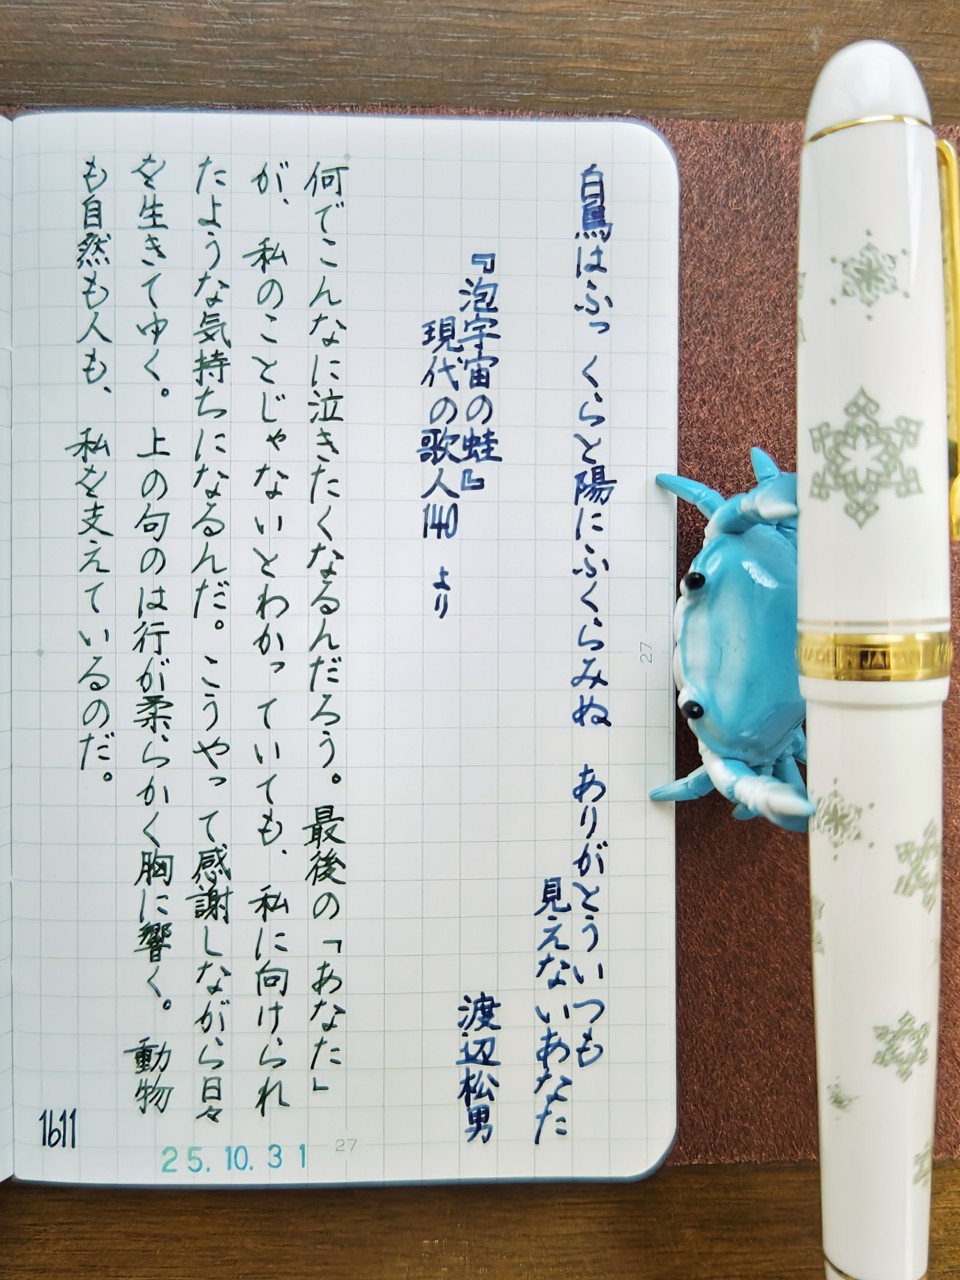 白鳥はふっくらと陽にふくらみぬ　ありがとういつも
見えないあなた
渡辺松男
『泡宇宙の蛙』
現代の歌人140　より
何でこんなに泣きたくなるんだろう。最後の「あなた」
が、私のことじゃないとわかっていても、私に向けられ
たような気持ちになるんだ。こうやって感謝しながら日々
を生きてゆく。上の句のは行が柔らかく胸に響く。動物
も自然も人も、私を支えているのだ。
1611
25.10.31
27
27
MADE IN JAPAN